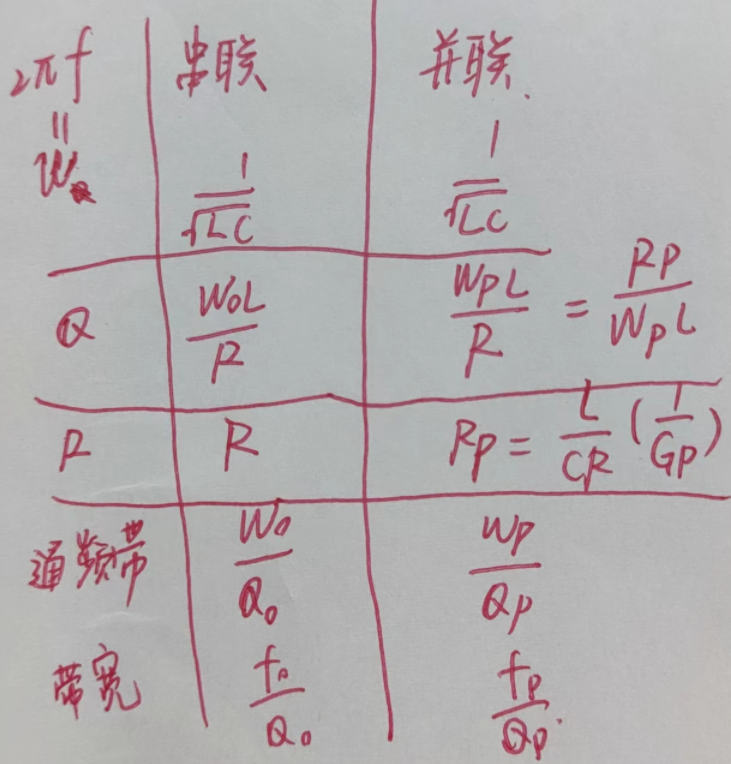 2πf 串联 并联
=
W₀ 1/√LC 1/√LC
Q W₀L/R WpL/R = Rp/WpL
R R Rp = L/CR (1/Gp)
通频带 W₀/Q₀ Wp/Qp
带宽 f₀/Q₀ fp/Qp